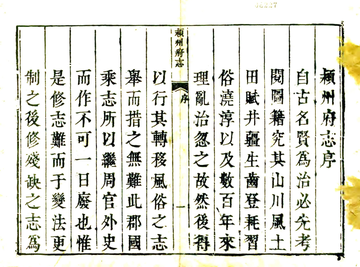 潁州府志序
自古名賢為治必先考
閱圖籍究其山川風土
田賦井疆生齒登耗習
俗澆淳以及數百年來
理亂治忽之故然後得
潁州府志
序
一
以行其轉移風俗之志
舉而措之無難此郡國
乘志所以繼周官外史
而作不可一日廢也惟
是修志難而于變法更
制之後修殘缺之志為